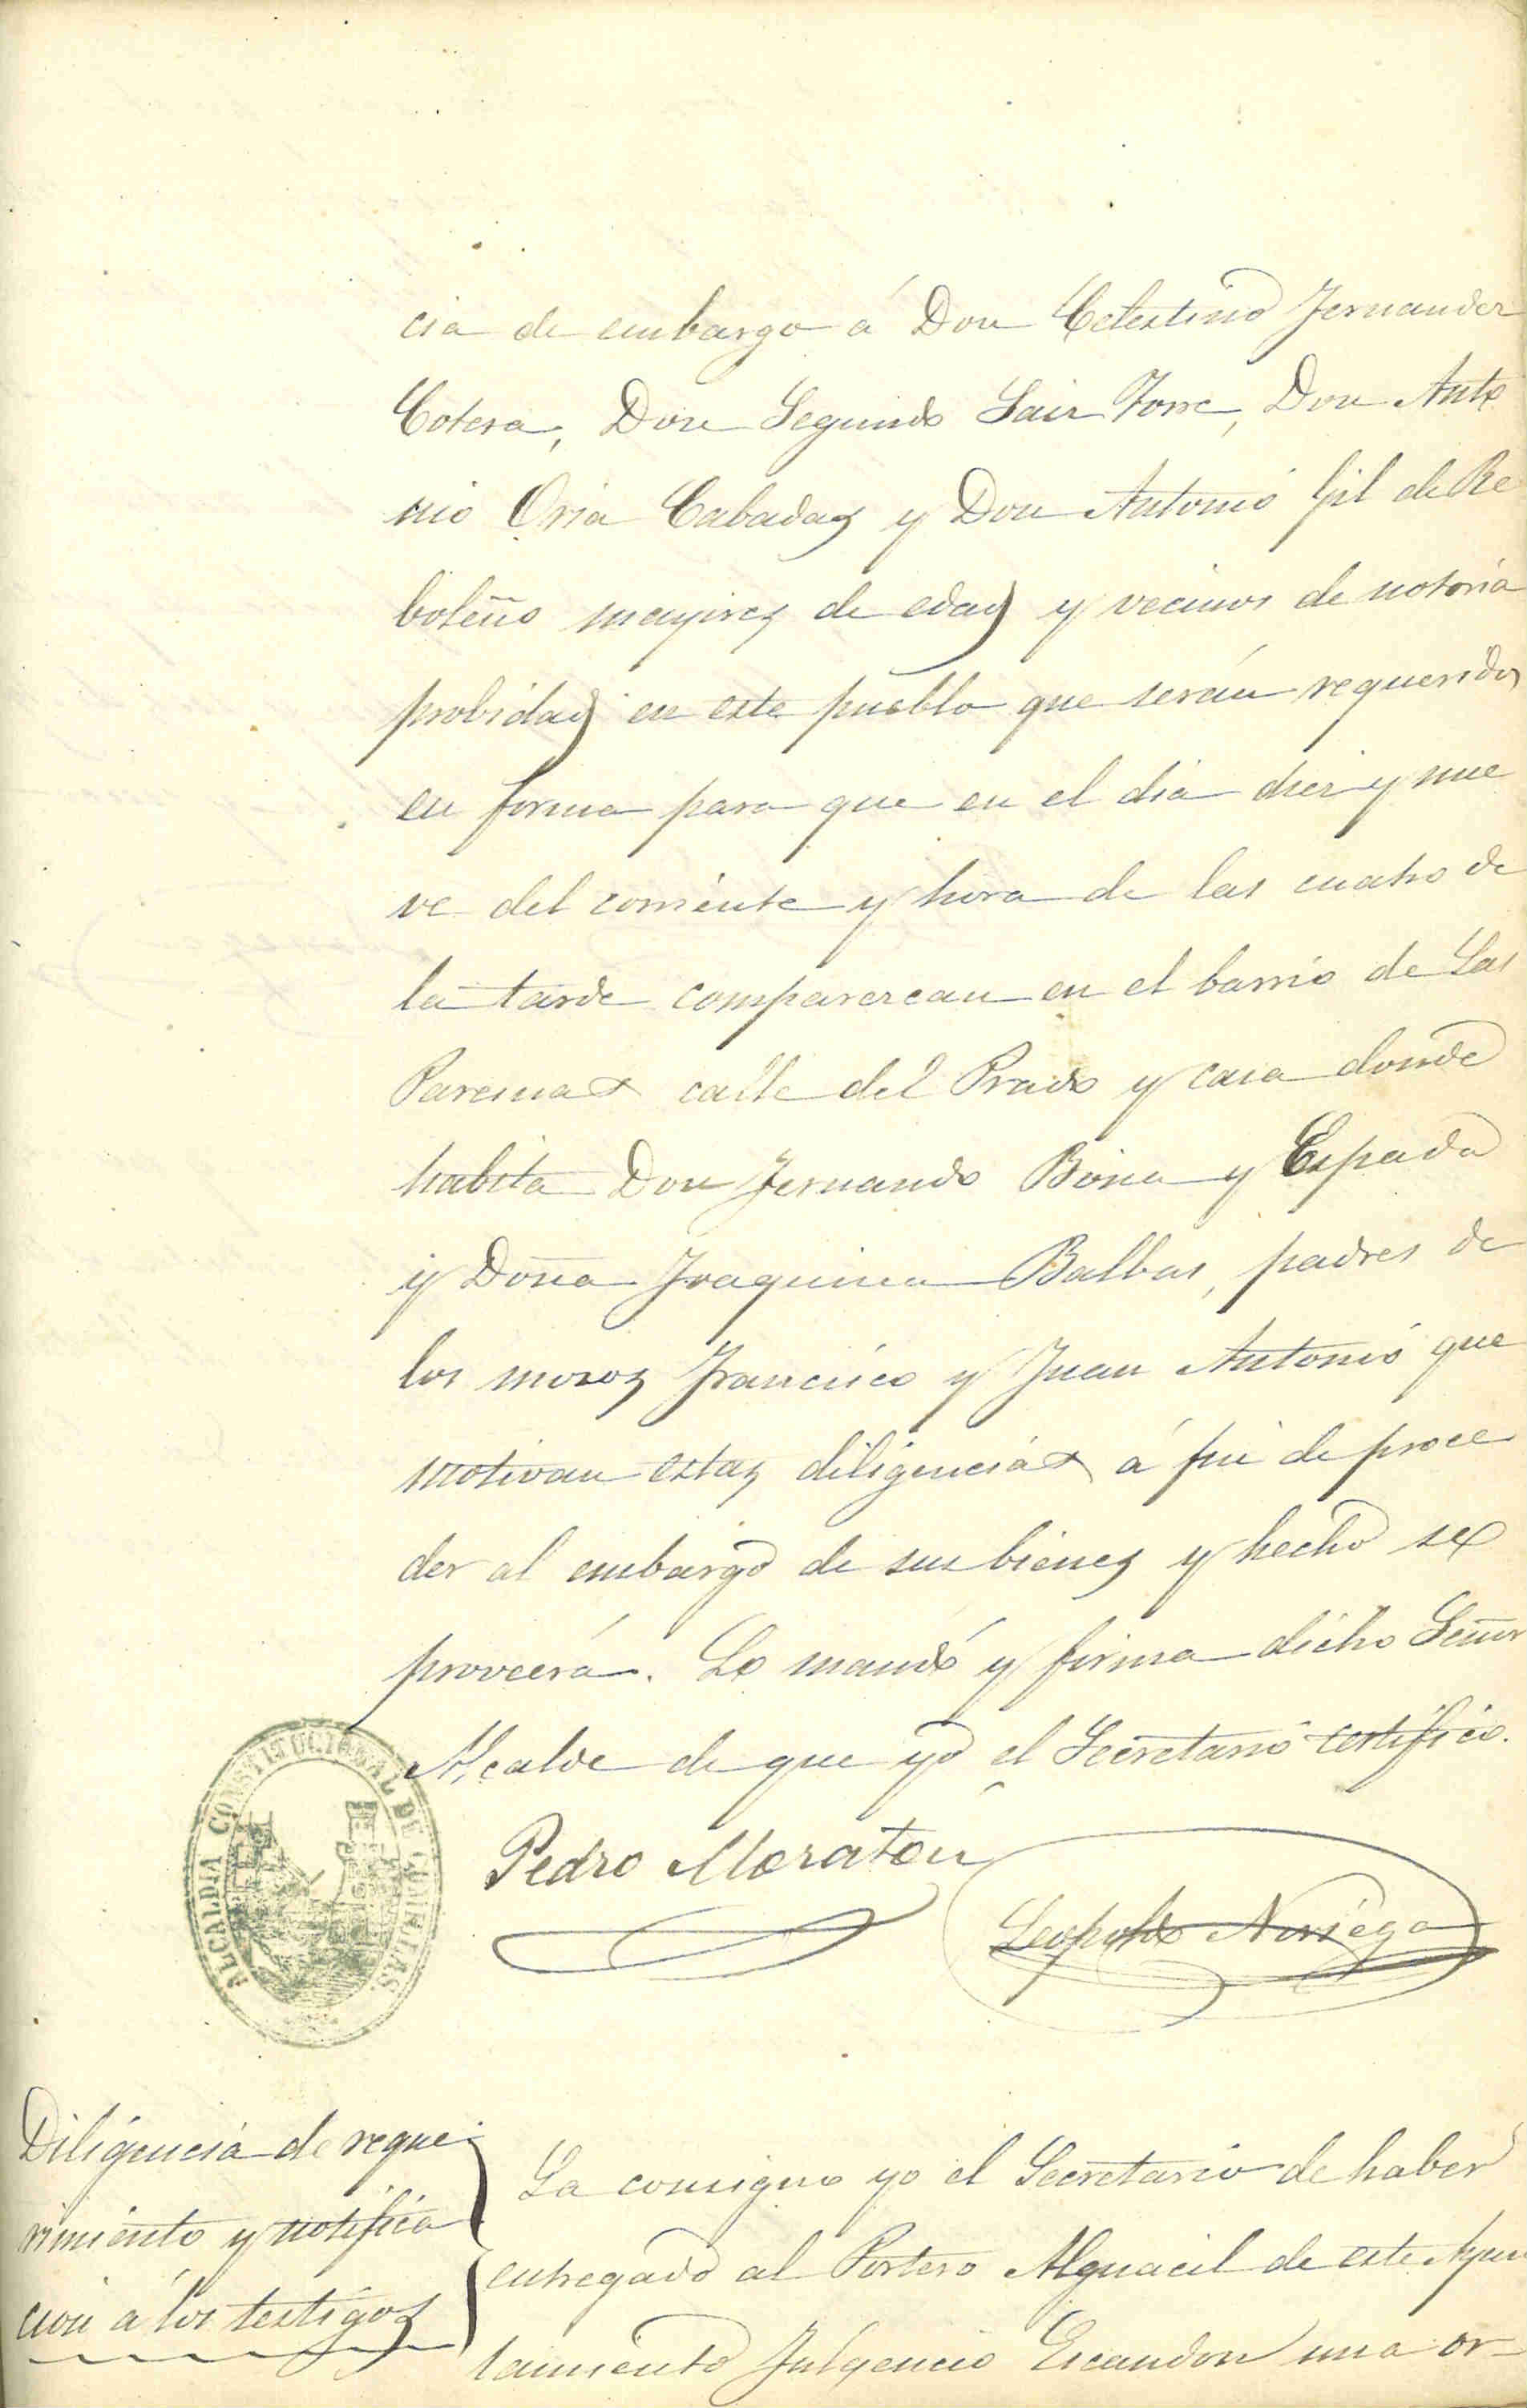 cia de embargo á Don Celestino Fernandez
Cotera, Don Segundo Sair Torre, Don Anto
nio Oria Cabadas y Don Antonio Gil de Re
boleño mayores de edad y vecinos de notoria
probidad en este pueblo que serán requeridos
en forma para que en el dia diez y nue
ve del corriente y hora de las cuatro de
la tarde comparezcan en el barrio de Las
calle del Prado y casa donde
habita Don Fernando y Espada
y Doña Joaquina Balbas, padres de
los mozos Francisco y Juan Antonio que
motivan estas diligencias á fin de proce
der al embargo de sus bienes y hecho se
proveerá. Lo mandó y firma dicho Señor
Alcalde de que yo el Secretario certifico.
ALCALDIA CONSTITUCIONAL DE COMILLAS
Pedro Moraton
Leopoldo Noriega
Diligencia de reque
rimiento y notifica
cion á los testigos
La consigno yo el Secretario de haber
entregado al Portero Alguacil de este Ayun
tamiento Fulgencio Escandon una or-